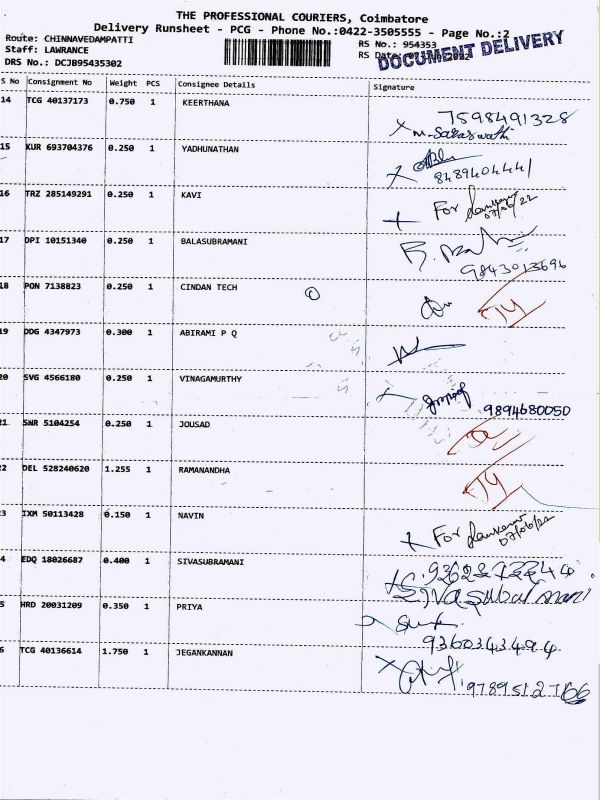 THE PROFESSIONAL COURIERS, Coimbatore
Delivery Runsheet - PCG - Phone No.:0422-3505555 - Page No.:2
Route: CHINNAVEDAMPATTI
RS No.: 954353
Staff: LAWRANCE
RS Date:
DOCUMENT DELIVERY
DRS No.: DCJB95435302
S No Consignment No Weight PCS Consignee Details Signature
14 TCG 40137173 0.750 1 KEERTHANA 7598491328
M. Saraswathi
15 KUR 693704376 0.250 1 YADHUNATHAN
8489404441
16 TRZ 285149291 0.250 1 KAVI For
07/06/22
17 DPI 10151340 0.250 1 BALASUBRAMANI
9843013696
18 PON 7138823 0.250 1 CINDAN TECH
19 DDG 4347973 0.300 1 ABIRAMI P Q
20 SVG 4566180 0.250 1 VINAGAMURTHY
9894680050
21 SNR 5104254 0.250 1 JOUSAD
22 DEL 528240620 1.255 1 RAMANANDHA
23 IXM 50113428 0.150 1 NAVIN For
07/06/22
4 EDQ 18026687 0.400 1 SIVASUBRAMANI
Sivasubramani
5 HRD 20031209 0.350 1 PRIYA
9360343494
6 TCG 40136614 1.750 1 JEGANKANNAN